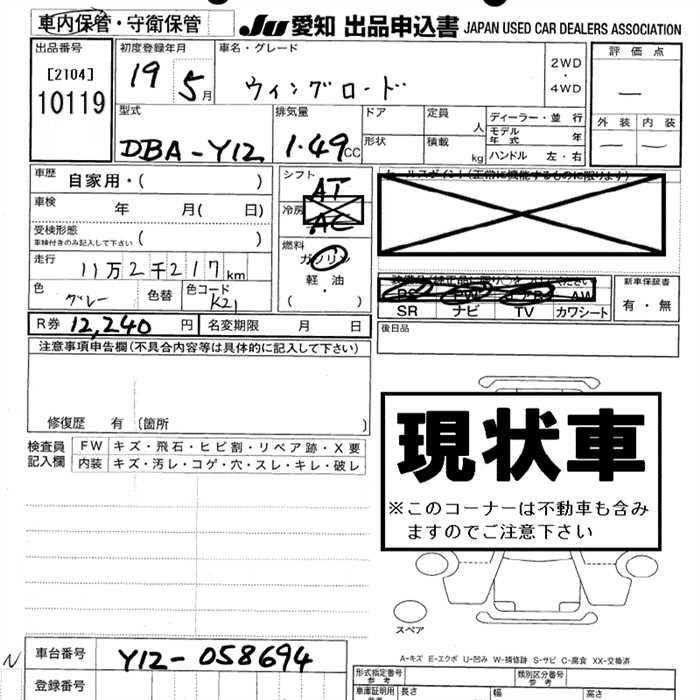 車内保管・守衛保管 JU 愛知 出品申込書 JAPAN USED CAR DEALERS ASSOCIATION
出品番号 初度登録年月 車名・グレード 2WD・4WD 評価点
[2104] 19 5月 ウィングロード —
10119
型式 排気量 ドア 定員 人 ディーラー・並行 外装 内装
DBA-Y12 1.49CC 形状 積載 kg モデル年式 年 — —
ハンドル 左・右
車歴 自家用・( ) シフト AT
車検 年 月( 日) 冷房 AC
受検形態 車検付きのみ記入して下さい ( ) 燃料 ガソリン
走行 11万2千217km 軽油
色 グレー 色替 色コード K21 (・)
新車保証書
PS PW エアB AW 有・無
SR ナビ TV カワシート
R券 12,240円 名変期限 月 日 後日品
注意事項申告欄(不具合内容等は具体的に記入して下さい)
修復歴 有 (箇所 )
検査員記入欄 FW キズ・飛石・ヒビ割・リペア跡・X要
内装 キズ・汚レ・コゲ・穴・スレ・キレ・破レ
現状車
※このコーナーは不動車も含み
ますのでご注意下さい
スペア
A-キズ E-エクボ U-凹み W-補修跡 S-サビ C-腐食 XX-交換済
N 車台番号 Y12-058694 形式指定番号 参考 類別区分番号 参考
登録番号 車庫証明用 参考 長さ 幅 高さ